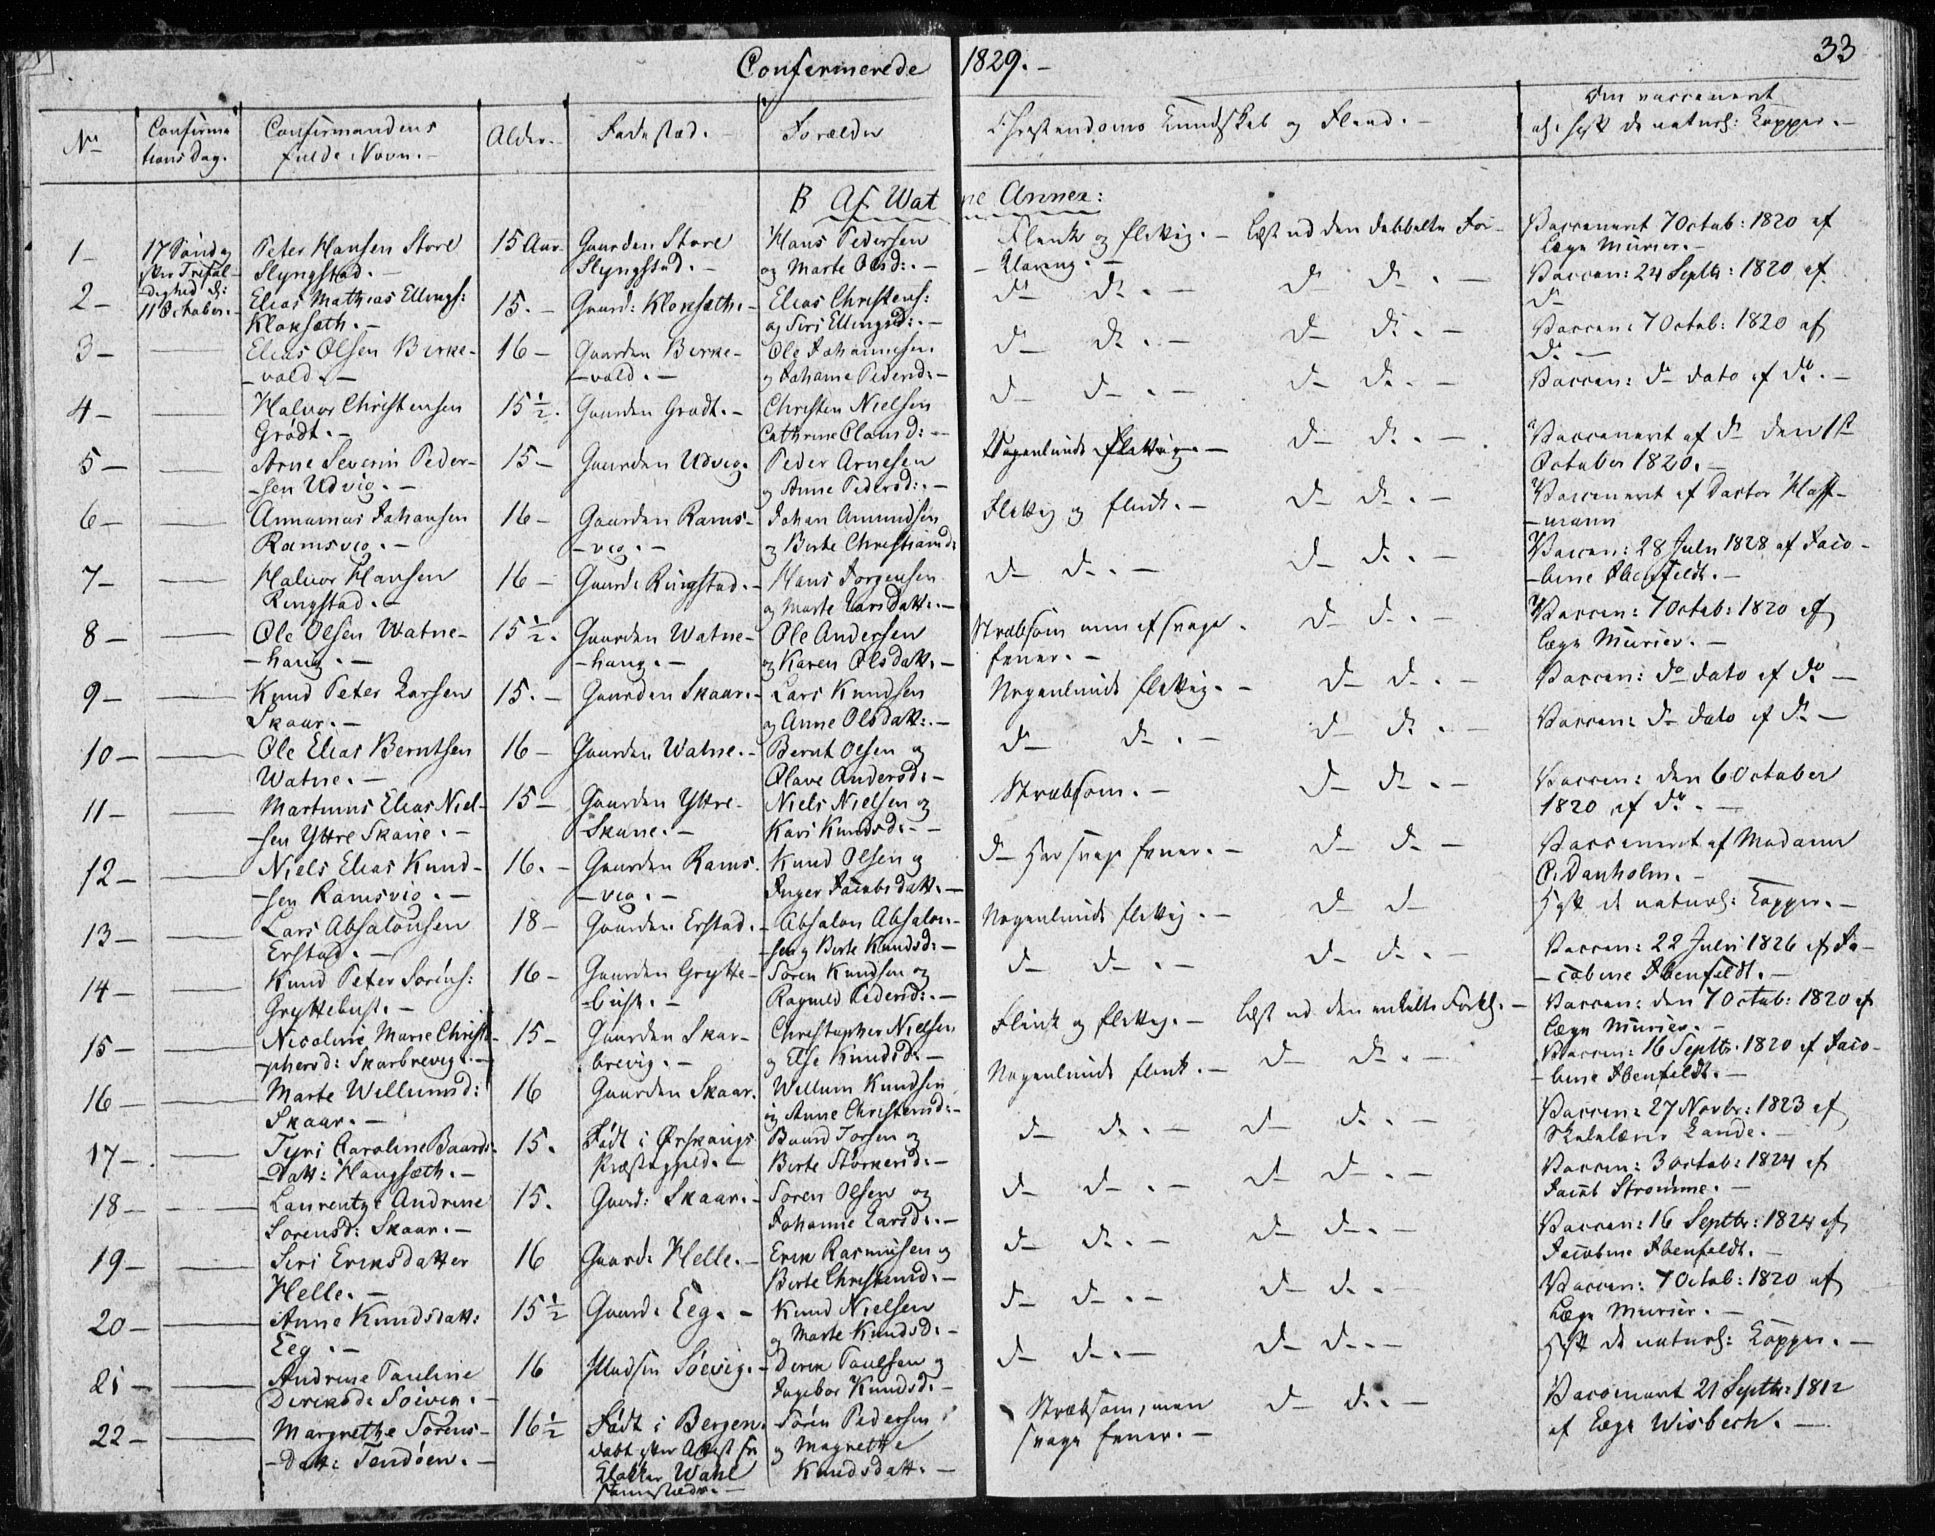 Confirmerede 1829.- 33
No Confirmationsdag. Confirmandens fulde Navn.- Alder.- Fødested.- Forældre Christendoms Kundskab og Fliid.- Om vaccineret el: havt de naturl: Kopper.-
B Af Watne Annex:
1- 17 Søndag efter Trefoldighed d: 11 October.- Peter Hansen Store Slyngstad.- 15 Aar Gaarden Store Slyngstad.- Hans Pedersen og Marte Olsd:.- Flink og flittig.- læst ud den dobbelte Forklaring.- Vaccineret 7 Octob: 1820 af Læge Murier.-
2- Elias Mathias Ellings: Kloksæth.- 15.- Gaard: Kloksæth.- Elias Christens: og Siri Ellingsd:.- do do.- do do.- Vaccin: 24 Septbr: 1820 af do
3- Elias Olsen Birkevold.- 16- Gaarden Birkevold.- Ole Johannesen og Johanne Pedersd:- do do.- do do.- Vaccin: 7 Octob: 1820 af do.-
4- Halvor Christensen Grødt.- 15½. Gaarden Grødt.- Christen Nielsen Cathrine Clausd:- do do.- do do.- Vaccin: do dato af do.-
5- Arne Severin Pedersen Udvig.- 15- Gaarden Udvig. Peder Arnesen og Anne Pedersd:.- Nogenlunde flittig.- do do.- Vaccineret af do den 1ste October 1820.-
6- Johansen Ramsvig.- 16- Gaarden Ramsvig.- Johan Amundsen og Birte Christiansd: Flittig og flink.- do do.- Vaccineret af Doctor Hoffmann
7- Halvor Hansen Ringstad.- 16- Gaard: Ringstad.- Hans Jorgensen og Marte Larsdatt:.- do do.- do do.- Vaccin: 28 Juli 1828 af Jacobine Ibenfeldt.-
8- Ole Olsen Watnehaug.- 15½. Gaarden Watnehaug.- Ole Andersen og Karen Olsdatt:.- Stræbsom men af svage Evner.- do do.- Vaccin: 7 Octob: 1820 af Læge Murier.-
9- Knud Peter Larsen Skaar.- 15.- Gaarden Skaar.- Lars Knudsen og Anne Olsdatt:.- Nogenlunde flittig.- do do.- Vaccin: do dato af do-
10- Ole Elias Berntsen Watne.- 16- Gaarden Watne.- Bernt Olsen og Olave Andersd:- do do.- do do.- Vaccin: do dato af do-
11- Martinus Elias Nielsen Yttre Skane.- 15- Gaarden Yttre Skane.- Niels Nielsen og Kari Knudsd:- Stræbsom.- do do.- Vaccin: den 6 October 1820 af do.-
12- Niels Elias Knudsen Ramsvig.- 16.- Gaarden Ramsvig.- Knud Olsen og Inger Jacobsdatt:- do har svage Evner.- do do- Vaccineret af Madame C. Danholm.-
13- Lars Absalonsen Erstad.- 18- Gaarden Erstad.- Absalon Absalonsen og Birte Knudsd:- Nogenlunde flittig.- do do Havt de naturl: Kopper.-
14- Knud Peter Sørens: Gryttebust.- 16- Gaarden Gryttebust.- Søren Knudsen og Ragnild Pedersd:.- do do.- do do.- Vaccin: 22 Juli 1826 af Jacobine Ibenfeldt.-
15- Nicoline Marie Christophersd: Skarbrevig.- 15- Gaarden Skarbrevig.- Christopher Nielsen og Else Knudsd:- Flink og flittig.- læst ud den enkelte Forkl:- Vaccin: den 7 Octob: 1820 af Læge Murier.-
16- Marte Willumsd: Skaar.- 16 Gaarden Skaar. Willum Knudsen og Anne Christensd:- Nogenlunde flink.- do do.- Vaccin: 16 Septbr: 1820 af Jacobine Ibenfeldt.-
17- Tyri Caroline Baardsdatt: Haugsæth.- 15. Født i Ørskaugs Præstegjeld.- Baard Torsen og Birte Størkersd:- do do.- do do.- Vaccin: 27 Novbr: 1823 af Skolelærer Lande.-
18- Laurentze Andrine Sorensd: Skaar.- 15. Gaard: Skaar.- Soren Olsen og Johanne Larsd:.- do do.- do do.- Vaccin: 3 Octob: 1824 af Jacob Strømme.-
19- Siri Eriksdatter Helle.- 16 Gaard: Helle.- Erik Rasmusen og Birte Christensd:- do do.- do do.- Vaccin: 16 Septbr: 1824 af Jacobine Ibenfeldt.-
20- Anne Knudsdatt: Eeg.- 15½ Gaard: Eeg.- Knud Nielsen og Marte Knudsd:- do do.- do do.- Vaccin: 7 Octob: 1820 af Læge Murier.-
21- Andrine Pauline Diriksd: Søevig.- 16 Pladsen Søevig.- Dirik Paulsen og Ingebor Knudsd:- do do.- do do.- Havt de naturl: Kopper.-
22- Margrethe Sørensdatt: Tendøen.- 16½ Født i Bergen. døbt efter Attest fra Klokker Wahl sammesteds.- Søren Pedersen og Magrethe Knudsdatt:- Stræbsom, men svage Evner.- do do.- Vaccineret 21 Septbr: 1812 af Læge Wisbech.-